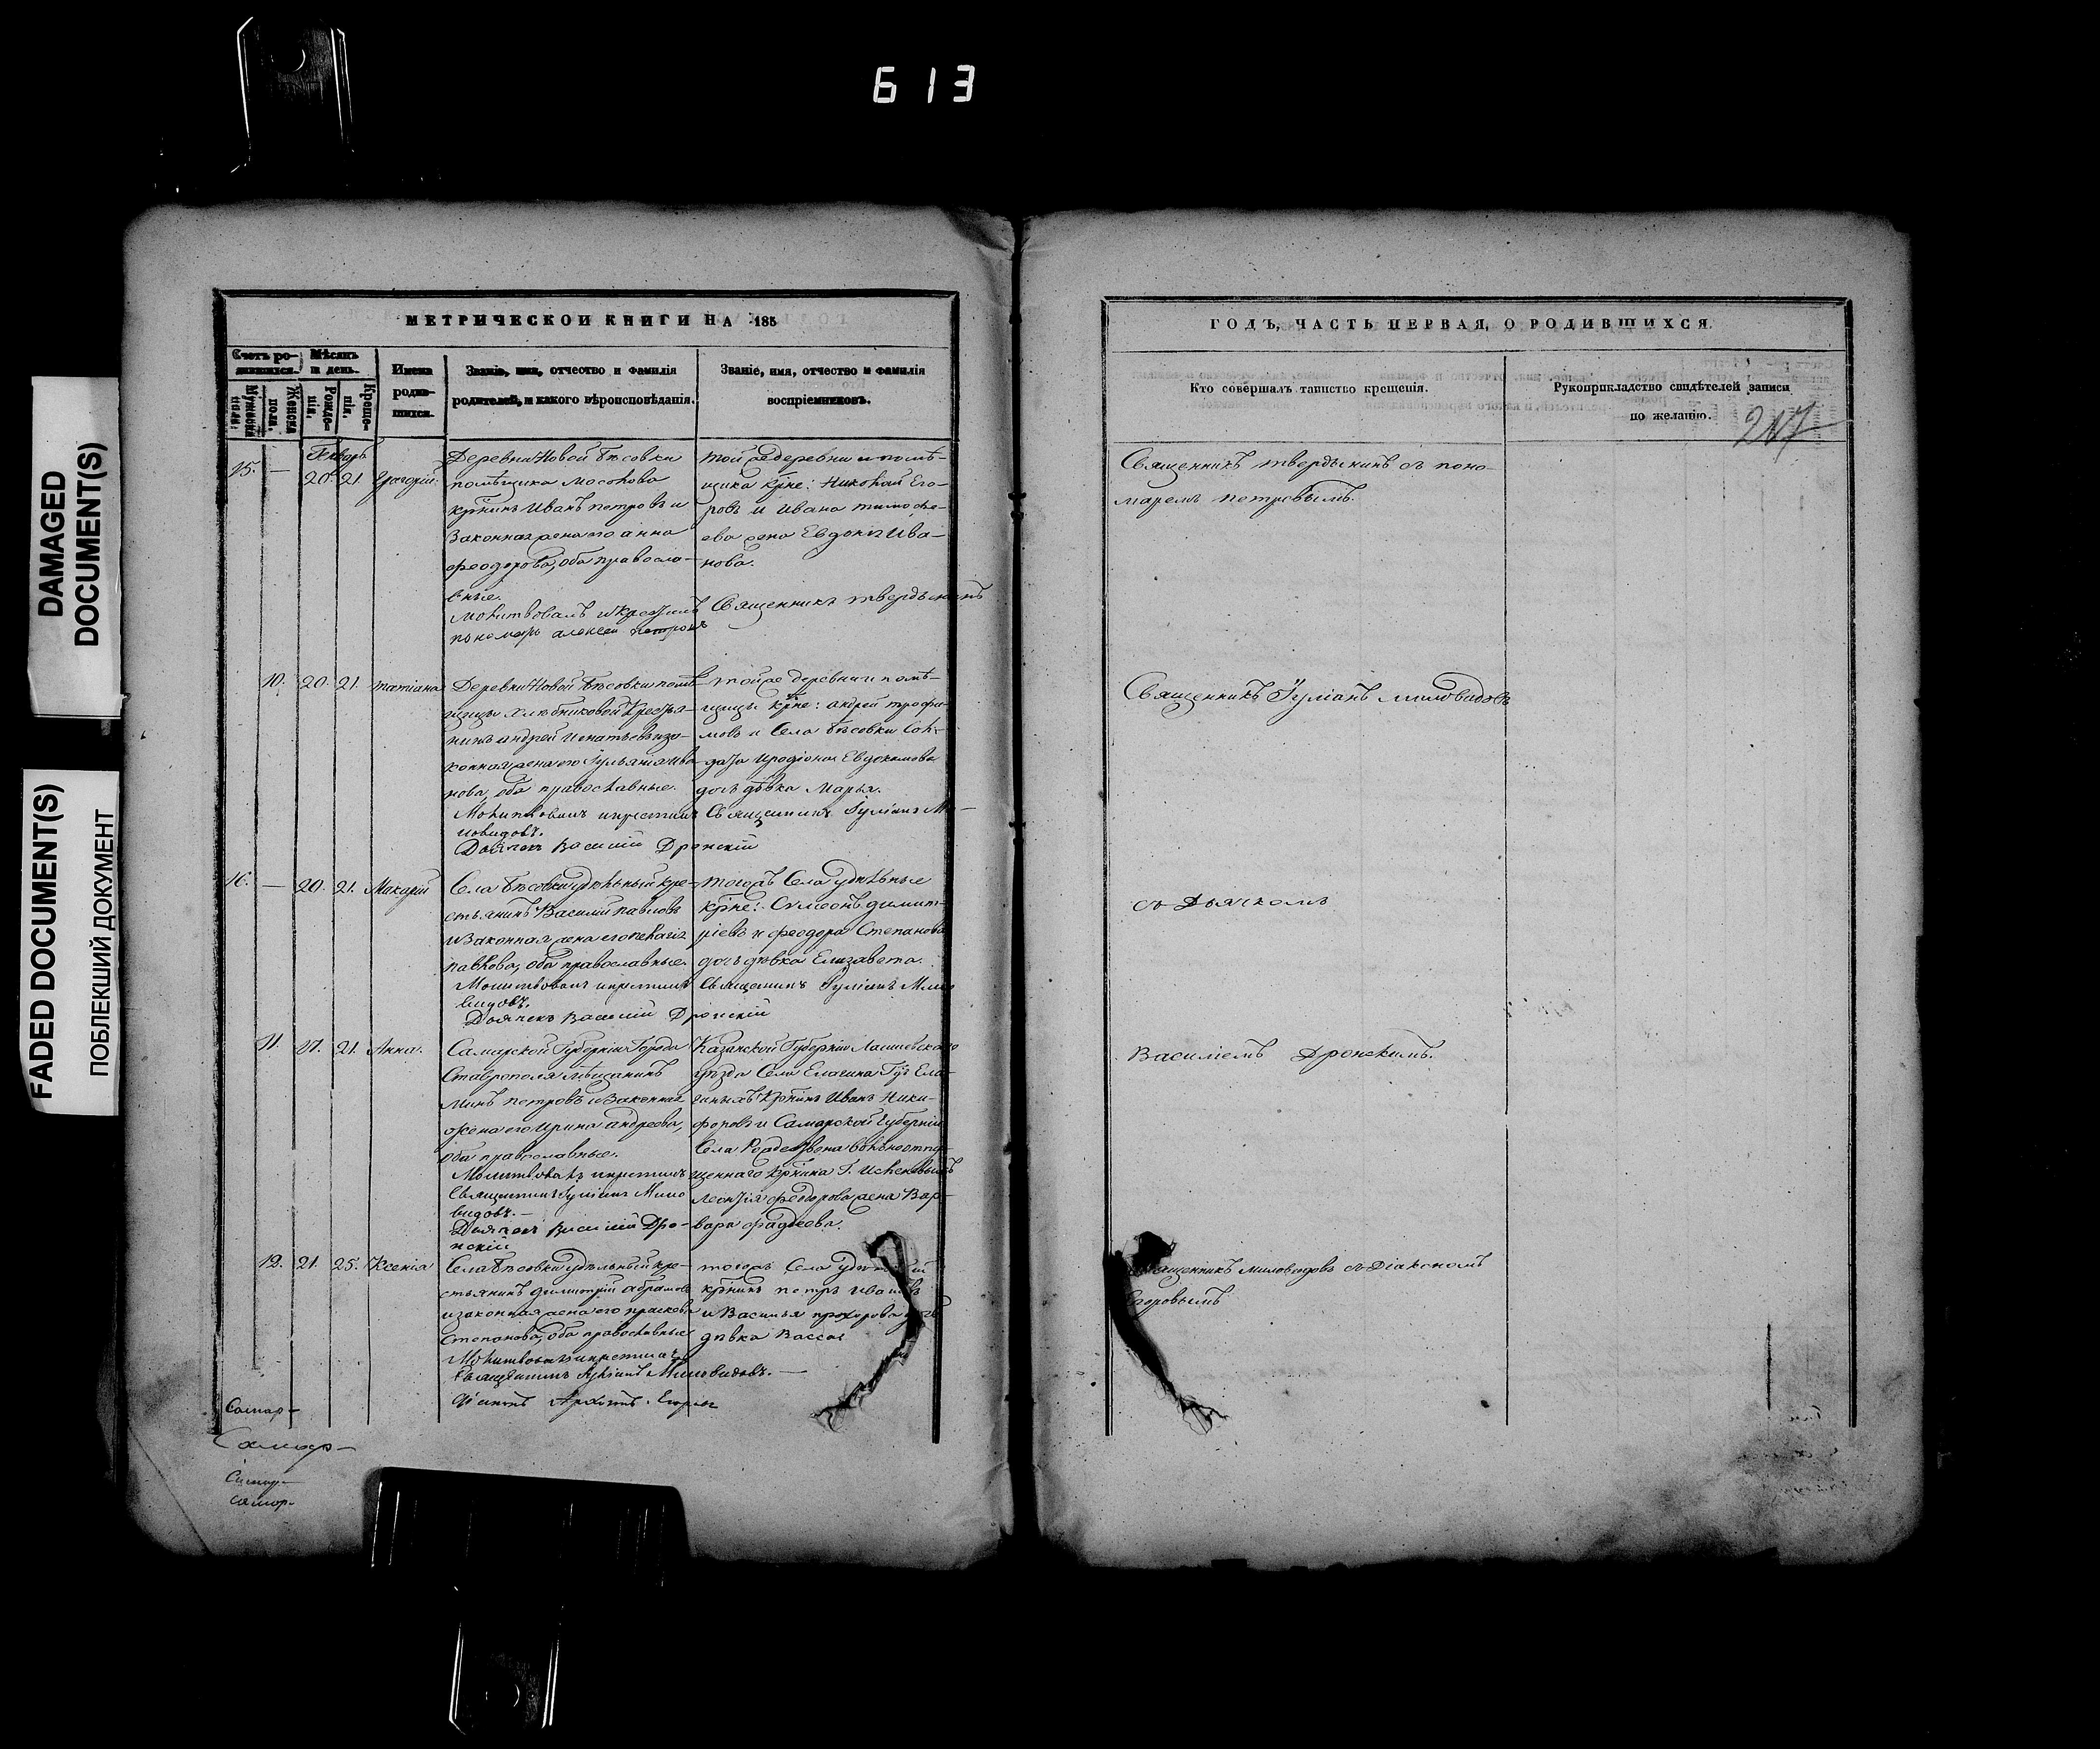 613
DAMAGED
DOCUMENT(S)
FADED DOCUMENT(S)
ПОБЛЕКШИЙ ДОКУМЕНТ
МЕТРИЧЕСКОЙ КНИГИ НА 185
Счетъ ро-
дившихся.
Мѣсяцъ
и день.
Мужеска
пола.
Женска
пола.
Рожде-
нія.
Креще-
нія.
Имена
родив-
шихся.
Званіе, имя, отчество и фамилія
родителей, и какого вѣроисповѣданія.
Званіе, имя, отчество и фамилія
воспріемниковъ.
Январь
15. — 20. 21. Григорій.
Деревни Новой Бѣсовки
помѣщика Мосолова
крнинъ Иванъ Петровъ и
законная жена его Анна
Феодорова, оба правосла-
вные.
Молитвовалъ и крестилъ
пономарь Алексей Петровъ
той же деревни и помѣ-
щика крне: Николай Его-
ровъ и Ивана Тимофе-
ева жена Евдокія Ива-
нова.
Священникъ Твердынинъ
10. 20. 21. Татіана
Деревни Новой Бѣсовки помѣ-
щицы Хлѣбниковой Крестья-
нинъ Андрей Игнатьевъ и за-
конная жена его Іульянія Ива-
нова, оба православные.
Молитвовалъ и крестилъ Священникъ Іуліанъ Ми-
ловидовъ.
Дьячекъ Василій Дронскій
той же деревни и помѣ-
щицы крне: Андрей Трофи-
мовъ и Села Бѣсовки Сол-
дата Иродіона Евдокимова
дочь дѣвка Марья.
16. — 20. 21. Макарій
Села Бѣсовки удѣльный кре-
стьянинъ Василий Павловъ
и законная жена его Пелагія
Павлова, оба православные.
Молитвовалъ и крестилъ Священникъ Іуліанъ Мило
видовъ.
Дьячекъ Василій Дронскій
тогожъ Села удѣльные
крне: Сѵмеонъ Димит-
ріевъ и Феодора Степанова
дочь дѣвка Елизавета.
11. 21. 21. Анна.
Самарской Губерніи Города
Ставрополя мѣщанинъ
Петровъ и законная
жена его Ирина Андреева,
оба православные.
Молитвовалъ и крестилъ
Священникъ Іуліанъ Мило
видовъ.—
Дьячекъ Василій Дро-
нскій
Казанской Губерніи Лаишевскаго
уѣзда Села Елагина Гдъ Ела-
гиныхъ Крнинъ Иванъ Ники-
форовъ и Самарской Губерніи
Села Рождествена вольноотпу-
щеннаго крнина
Леонтія Феодорова жена Вар-
вара Фадѣева.
12. 21. 25. Ксенія
Села Бѣсовки удѣльный кре-
стьянинъ Димитрій Абрамовъ
и законная жена его Праскева
Степанова, оба православные
Молитвовалъ и крестилъ
Священникъ Іуліанъ Миловидовъ. —
Діаконъ Егоровъ
тогожъ Села удѣльный
крнинъ Петръ Ивановъ
и Василья Прохорова дочь
дѣвка Васса
Самар-
Самар-
Самар-
самар-
ГОДЪ, ЧАСТЬ ПЕРВАЯ, О РОДИВШИХСЯ.
Кто совершалъ таинство крещенія.
Рукоприкладство свидѣтелей записи
по желанію.
217
Священникъ Твердынинъ съ поно-
маремъ Петровымъ.
Священникъ Іуліанъ Миловидовъ
съ Дьячкомъ
Василіемъ Дронскимъ.
Священникъ Миловидовъ съ Діакономъ
Егоровымъ